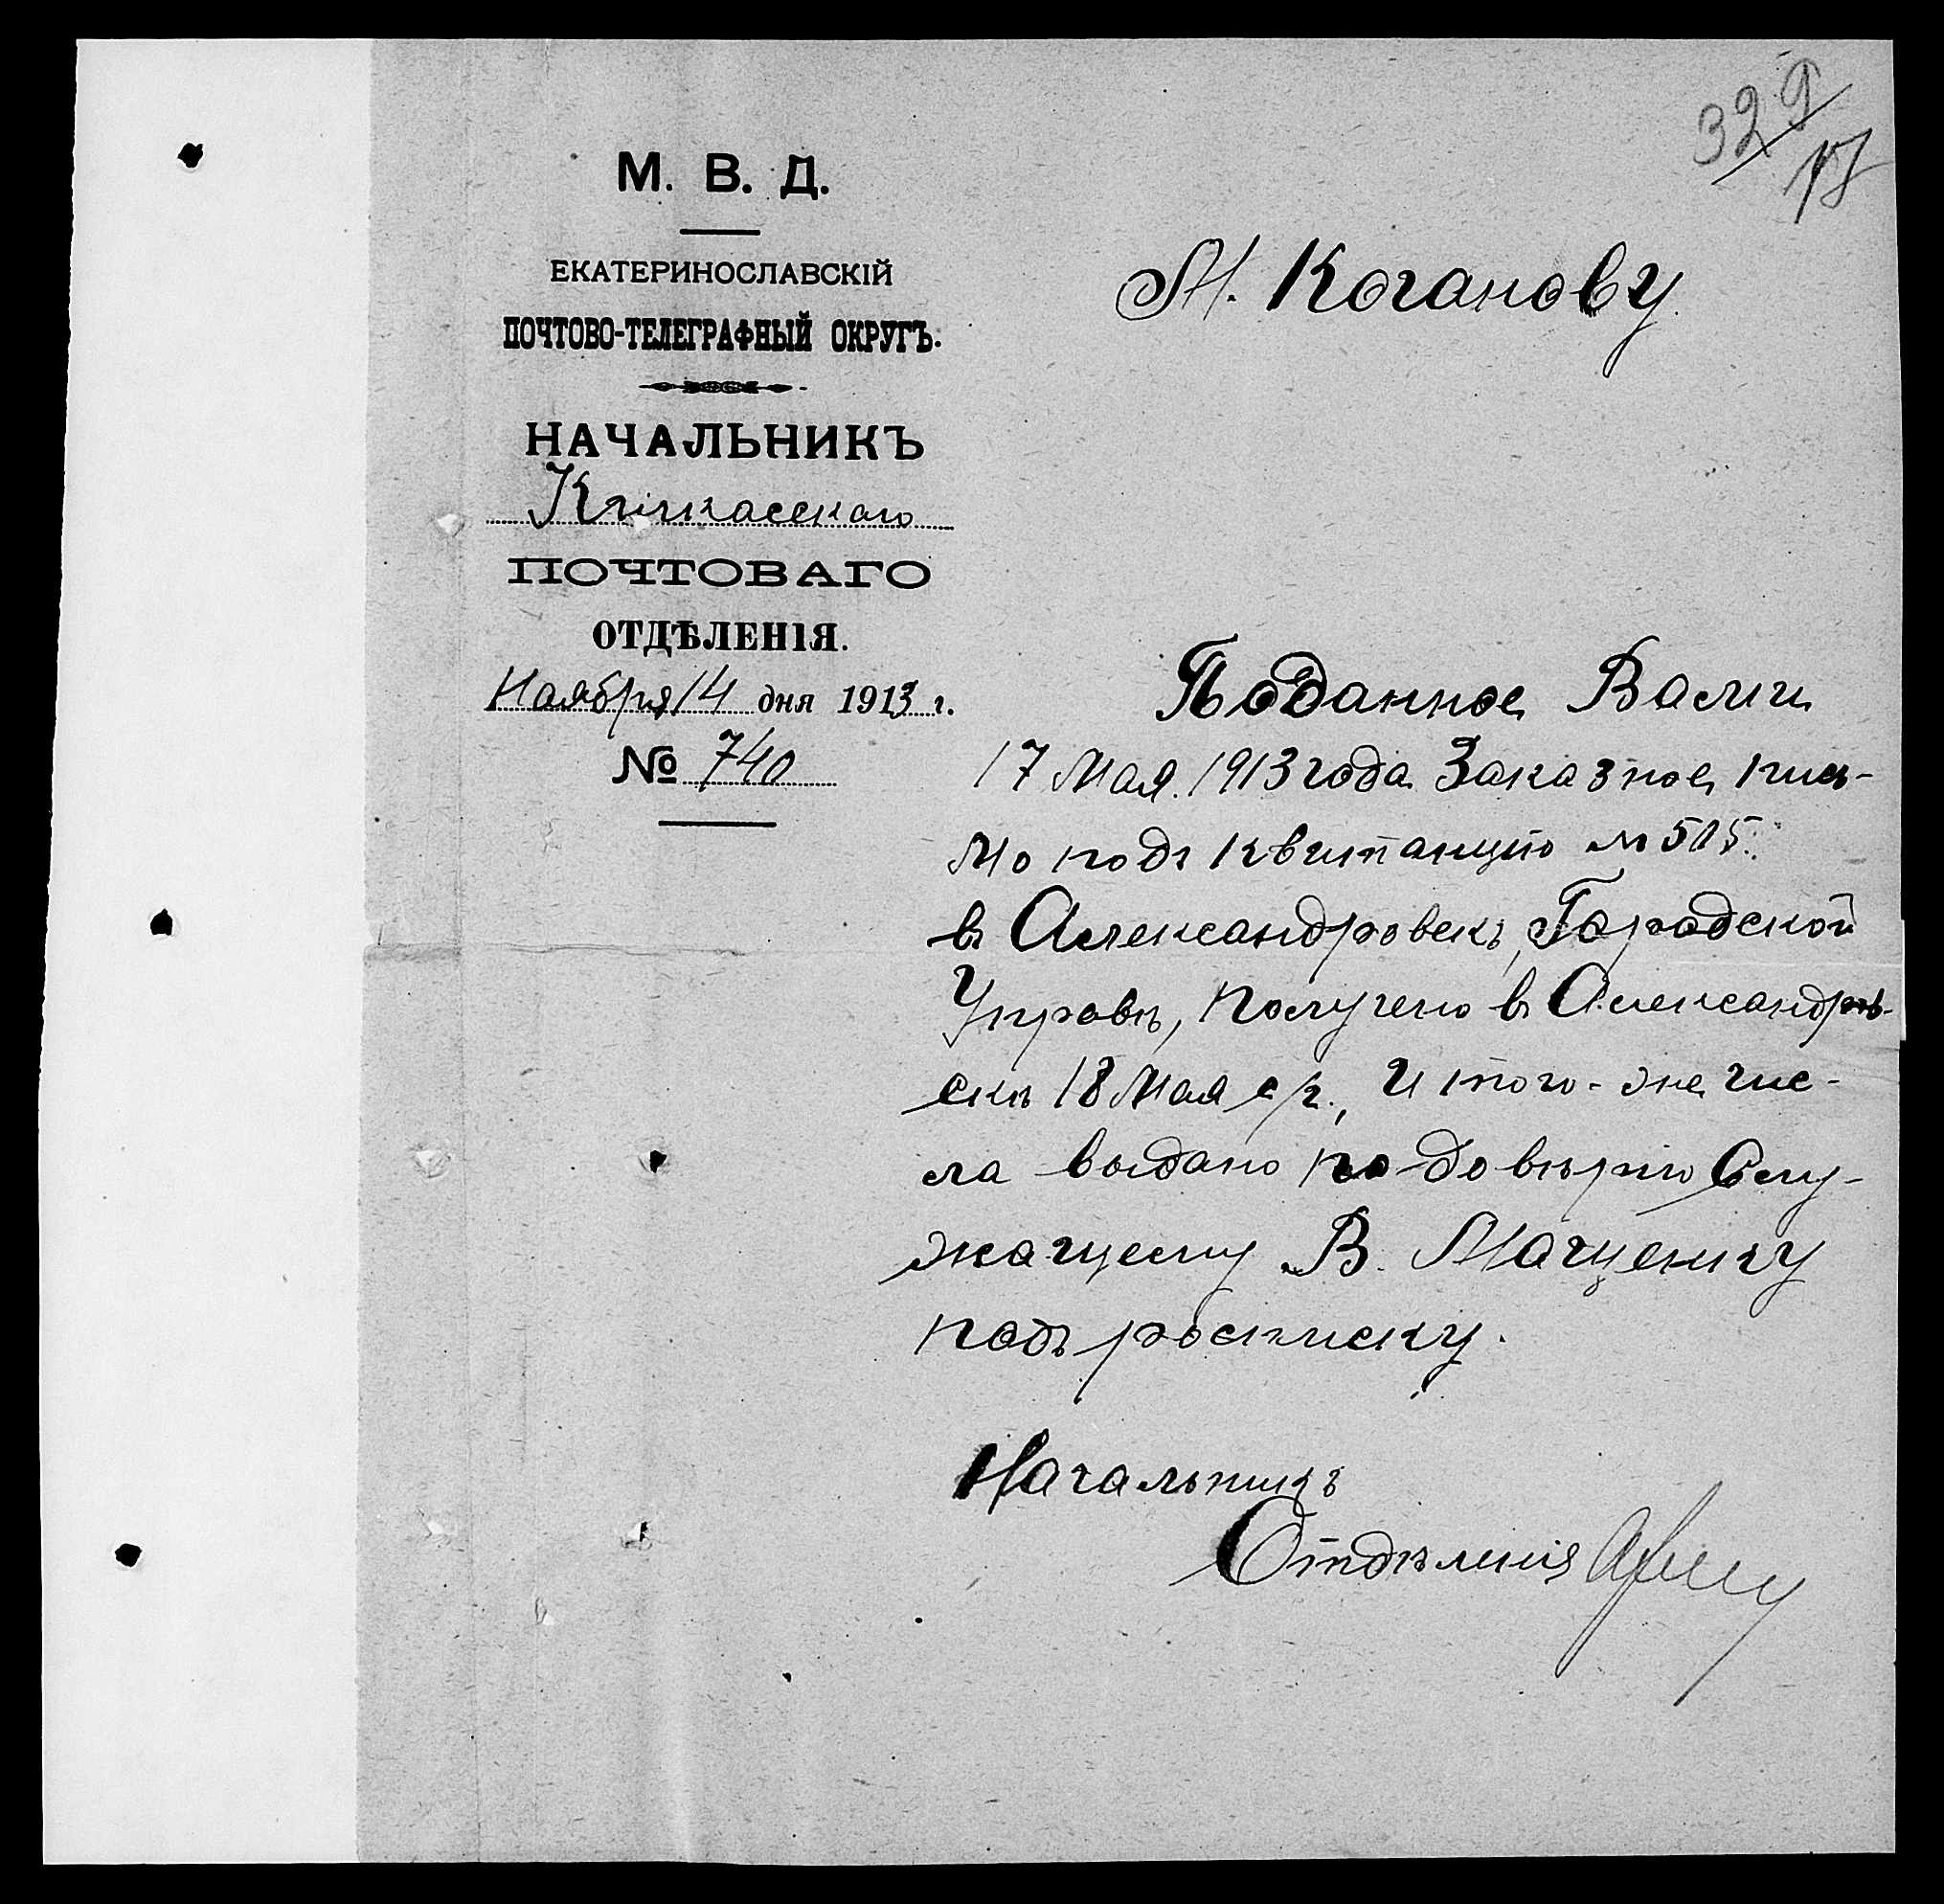 329
18
М. В. Д.
ЕКАТЕРИНОСЛАВСКІЙ
ПОЧТОВО-ТЕЛЕГРАФНЫЙ ОКРУГЪ.
НАЧАЛЬНИКЪ
Кичкасскаго
ПОЧТОВАГО
ОТДѢЛЕНІЯ.
Ноября 14 дня 1913 г.
№ 740
М. Коганову.
Поданное Вами
17 Мая 1913 года Заказное пись-
мо подъ квитанцію № 515
въ Александровскъ, Городской
Управѣ, получено въ Александров-
скѣ 18 Мая с/г., и того-же чис-
ла выдано по довѣрію Слу-
жащему В. Мащенку
подъ росписку.
Начальникъ
Отдѣленія